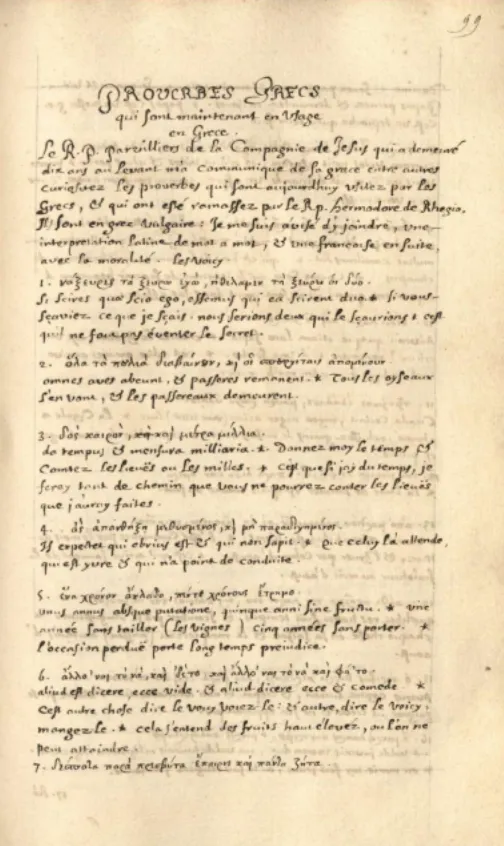 99
PROUERBES GRECS
qui sont maintenant en Vsage
en Grece.
Le R. P. Parvilliers de la Compagnie de Jesus qui a demeuré
dix ans au levant m'a communiqué de sa grace entre autres
curiositez les proverbes qui sont aujourdhuy usitez par les
Grecs, & qui ont esté ramassez par le R.p. hermodore de Rhegio.
Ils sont en grec Vulgaire: Je me suis avisé d'y joindre, une
interpretation latine de mot a mot, & une francoise en suite,
avec la moralité. les voicy
1. νάξευρις τὸ ξεύρω ἐγώ,
Si scires quod scio ego, essemus qui ea scirent duo * si vous
sçaviez ce que je sçais. nous serions deux qui le sçaurions * c'est
qu'il ne faut pas éventer le secret.
2. ὅλα τὰ πουλιά
omnes aves abeunt, & passeres remanent. * Tous les oyseaux
s'en vont, & les passereaux demeurent.
3. δός καιρόν, καὶ μέτρα μίλλια.
da tempus & mensura milliaria. * Donnez moy le temps &
Comtez les lieuës ou les milles. * c'est que si j'ay du temps, je
feray tant de chemin que vous ne pourrez conter les lieuës
que j'auray faites.
4.
Is expectet qui ebrius est & qui non sapit. * que celuy la attende,
qui est yvre & qui n'a point de conduite.
5. ἕνα χρόνον ἄκλαδο, πέντε χρόνους
unus annus absque putatione, quinque anni sine fructu. * une
année sans tailler (les vignes) cinq années sans porter. *
l'occasion perduë porte long temps prejudice.
6. ἄλλο καὶ
aliud est dicere, ecce vide. & aliud dicere ecce & comede *
C'est autre chose dire le voicy voiez le: & autre, dire le voicy,
mangez le. * cela s'entend des fruits haut elevez, ou l'on ne
peut attaindre.
7. παρὰ